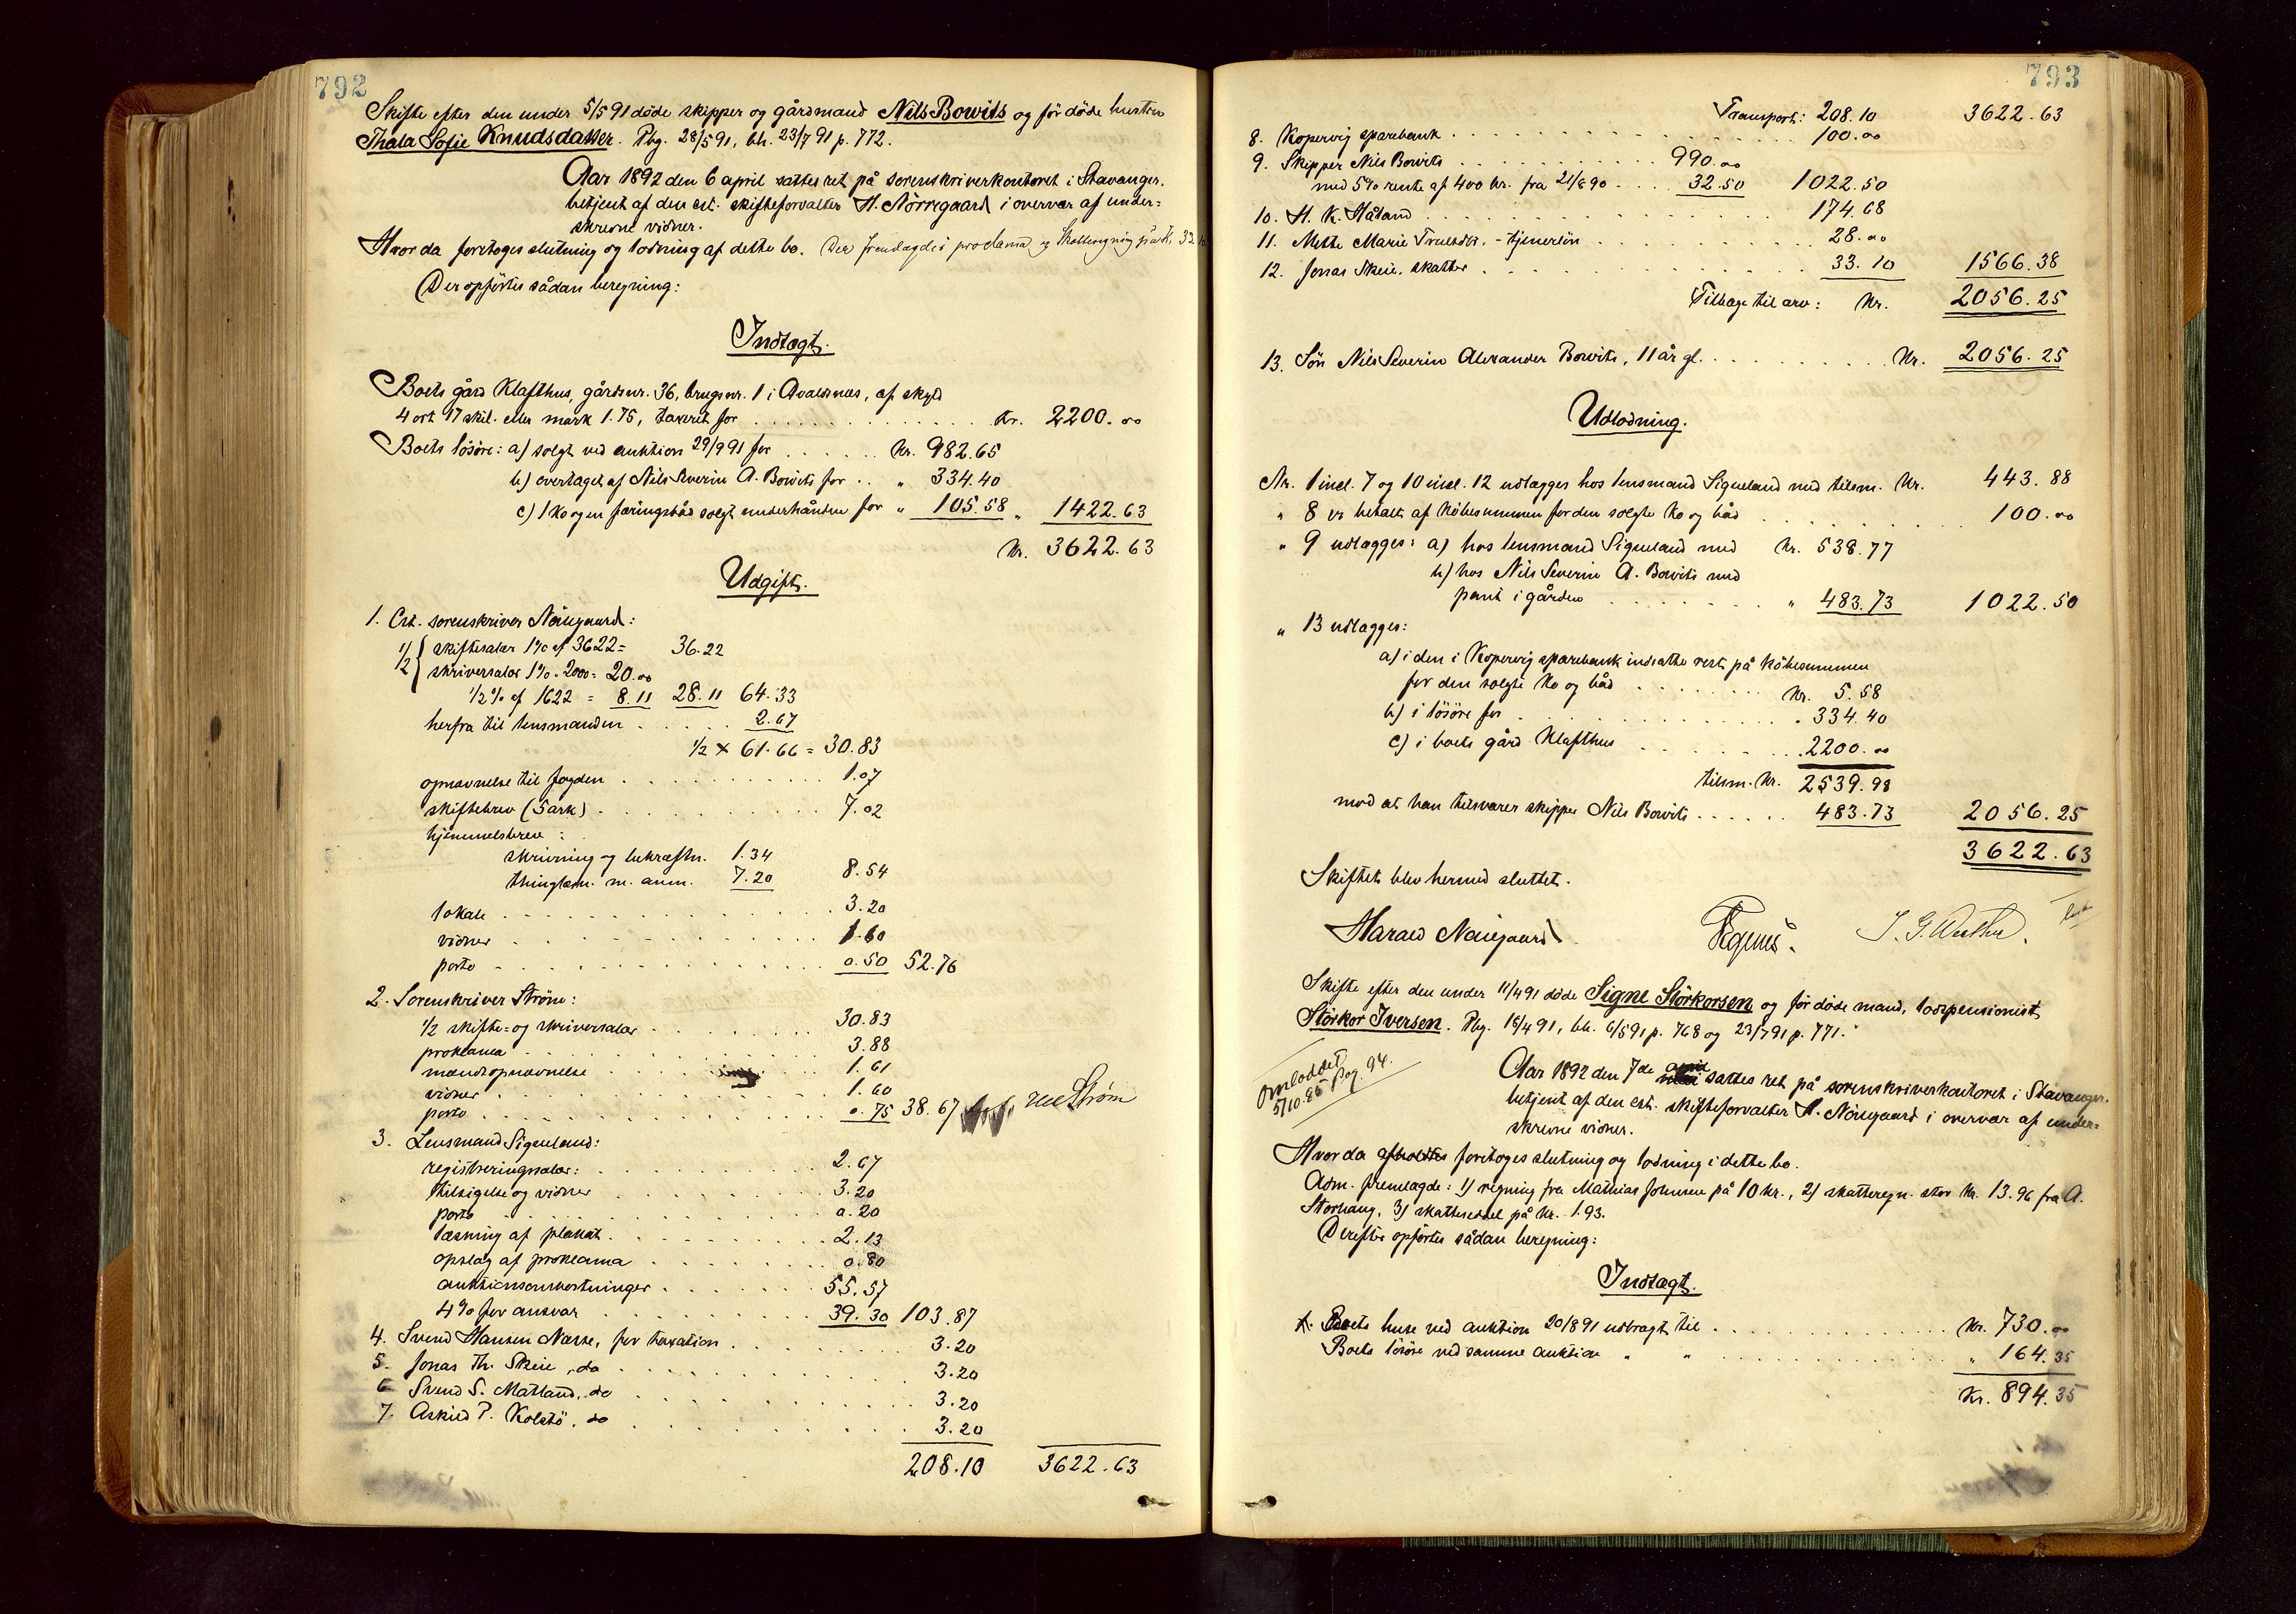 792
Skifte efter den under 5/5 91 döde skipper og gårdmand Nils Bowits og för döde hustru
Thala Sofie Knudsdatter. Pbg. 28/5 91, bh. 23/7 91 p. 772.
Aar 1892 den 6 april sattes ret på sorenskriverkontoret i Stavanger.
betjent af den cst. skifteforvalter H. Nörregaard i overvær af under=
skrevne vidner.
Hvor da foretoges slutning og lodning af dette bo. Der fremlagdes proclama og Skatteregning
Der opförtes sådan beregning:
Indtægt.
Boets gård Klafthus, gårdsnr. 36, brugsnr. 1 i Avaldsnes, af skyld
4 ort 17 skil. eller mark 1.75, taxeret for . . . . Kr. 2200.00
Boets lösöre: a) solgt ved auktion 29/9 91 for . . . . Kr. 982.65
b) overtaget af Nils Severin A. Bowits for . . „ 334.40
c) 1 ko og en færingsbåd solgt underhånden for „ 105.58 „ 1422.63
Kr. 3622.63
Udgift.
1. Cst. sorenskriver Nörregaard:
1/2 { skiftesalær 1% af 3622 = 36.22
skriversalær 1% . 2000 = 20.00
1/2 % af 1622 = 8.11 28.11 64.33
herfra til lensmanden . . . . 2.67
1/2 × 61.66 = 30.83
opnævnelse til fogden . . . . 1.07
skiftebrev (5 ark) . . . . 7.02
hjemmelsbrev :
skrivning og bekræftn. 1.34
thinglæsn. m. anm. 7.20 8.54
lokale . . . . 3.20
vidner . . . . 1.60
porto . . . . 0.50 52.76
2. Sorenskriver Ström:
1/2 skifte= og skriversalær . . . . 30.83
proklama . . . . 3.88
mandsopnævnelse . . . . 1.61
vidner . . . . 1.60
porto . . . . 0.75 38.67 Ström
3. Lensmand Sigueland:
registreringssalær: . . . . 2.67
tilsigelse og vidner . . . . 3.20
porto . . . . 0.20
læsning af plakat . . . . 2.13
opslag af proklama . . . . 0.80
auktionsomkostninger . . . . 55.57
4% for ansvar . . . . 39.30 103.87
4. Svend Hansen Næsse, for taxation . . . . 3.20
5. Jonas Th. Skeie, do . . . . 3.20
6 Svend S. Matland, do . . . . 3.20
7. Askild P. Kolstö, do . . . . 3.20
208.10 3622.63
793
Transport: 208.10 3622.63
8. Kopervig sparebank . . . . 100.00
9. Skipper Nils Bowits . . . . 990.00
med 5% rente af 400 kr. fra 21/8 90 . . . . 32.50 1022.50
10. H. K. Håland . . . . 174.68
11. Mette Marie Truelsdtr. - tjenerlön . . . . 28.00
12. Jonas Skeie, skatter . . . . 33.10 1566.38
Tilbage til arv: Kr. 2056.25
13. Sön Nils Severin Alexander Bowits, 11 år gl. . . . . Kr. 2056.25
Udlodning.
Nr. 1 incl. 7 og 10 incl. 12 udlægges hos lensmand Sigueland med tilsm. Kr. 443.88
„ 8 er betalt af köbesummen for den solgte ko og båd . . . . 100.00
„ 9 udlægges: a) hos lensmand Sigueland med Kr. 538.77
b) hos Nils Severin A. Bowits med
pant i gården . . . . „ 483.73 1022.50
„ 13 udlægges:
a) i den i Kopervig sparebank indsatte rest på köbesummen
for den solgte ko og båd . . . . Kr. 5.58
b) i lösöre for . . . . „ 334.40
c) i boets gård Klafthus . . . . 2200.00
tilsm. Kr. 2539.98
mod at han tilsvarer skipper Nils Bowits . . . . 483.73 2056.25
3622.63
Skiftet blev hermed sluttet.
Harald Nörregaard
Skifte efter den under 11/4 91 döde Signe Störkorsen og för döde mand, lodspensionist
Störkor Iversen. Pbg. 16/4 91, bh. 6/5 91 p. 768 og 23/7 91 p. 771.
Omloddet
5/10.85 Pag. 94.
Aar 1892 den 7de april sattes ret på sorenskriverkontoret i Stavanger.
betjent af den cst. skifteforvalter H. Nörregaard i overvær af under=
skrevne vidner.
Hvor da afholdtes foretoges slutning og lodning i dette bo.
Adm. fremlagde: 1) regning fra Mathias Johnsen på 10 kr., 2) skatteregn. stor Kr. 13.96 fra A.
Storhaug, 3) skatteseddel på Kr. 1.93.
Derefter opförtes sådan beregning:
Indtægt.
Boets huse ved auktion 20/8 91 udbragt til . . . . Kr. 730.00
Boets lösöre ved samme auktion „ „ . . . . „ 164.35
Kr. 894.35